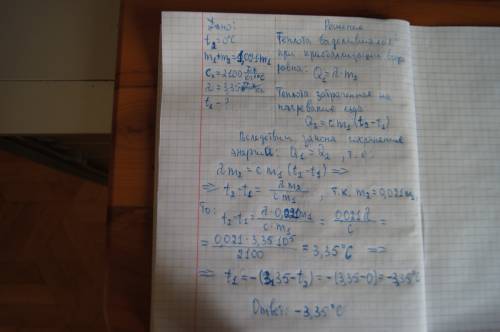 Дано:
t₂=0°C
m₁+m₂=1,021m₁
C₁=2100 Дж/кг°C
λ=3,35
t₁-?
Решение
Теплота выделившаяся
при кристаллизации воды
равна: Q₁=λ·m₂
Теплота затраченная на
нагревание льда
Q₂=cm₁(t₂-t₁)
Вследствии закона сохранения
энергии: Q₁=Q₂, т.е.
λm₂=cm₁(t₂-t₁) =>
=> t₂-t₁= λm₂/cm₁, т.к. m₂=0,021m₁
То: t₂-t₁= λ·0,021m₁/c·m₁ = 0,021λ/c =
= 0,021·3,35·10⁵/2100 = 3,35°C =>
=> t₁=-(3,35-t₂)=-(3,35-0)=-3,35°C
Ответ: -3,35°C